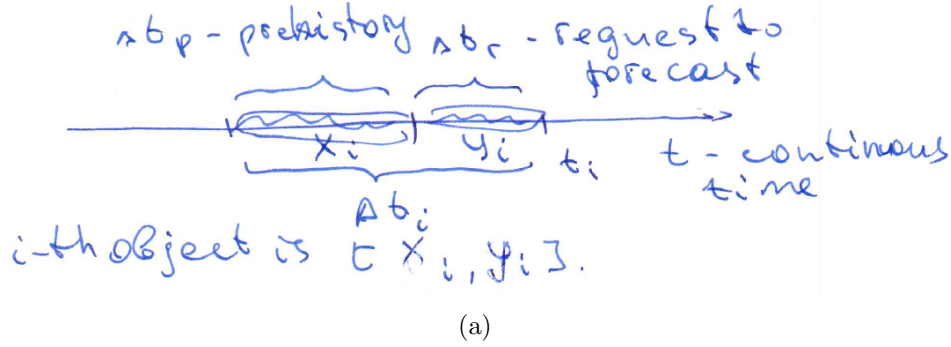 Δt_p - prehistory Δt_r - request to
forecast
x_i y_i t_i t - continuous
time
Δt_i
i-th object is [x_i, y_i].
(a)